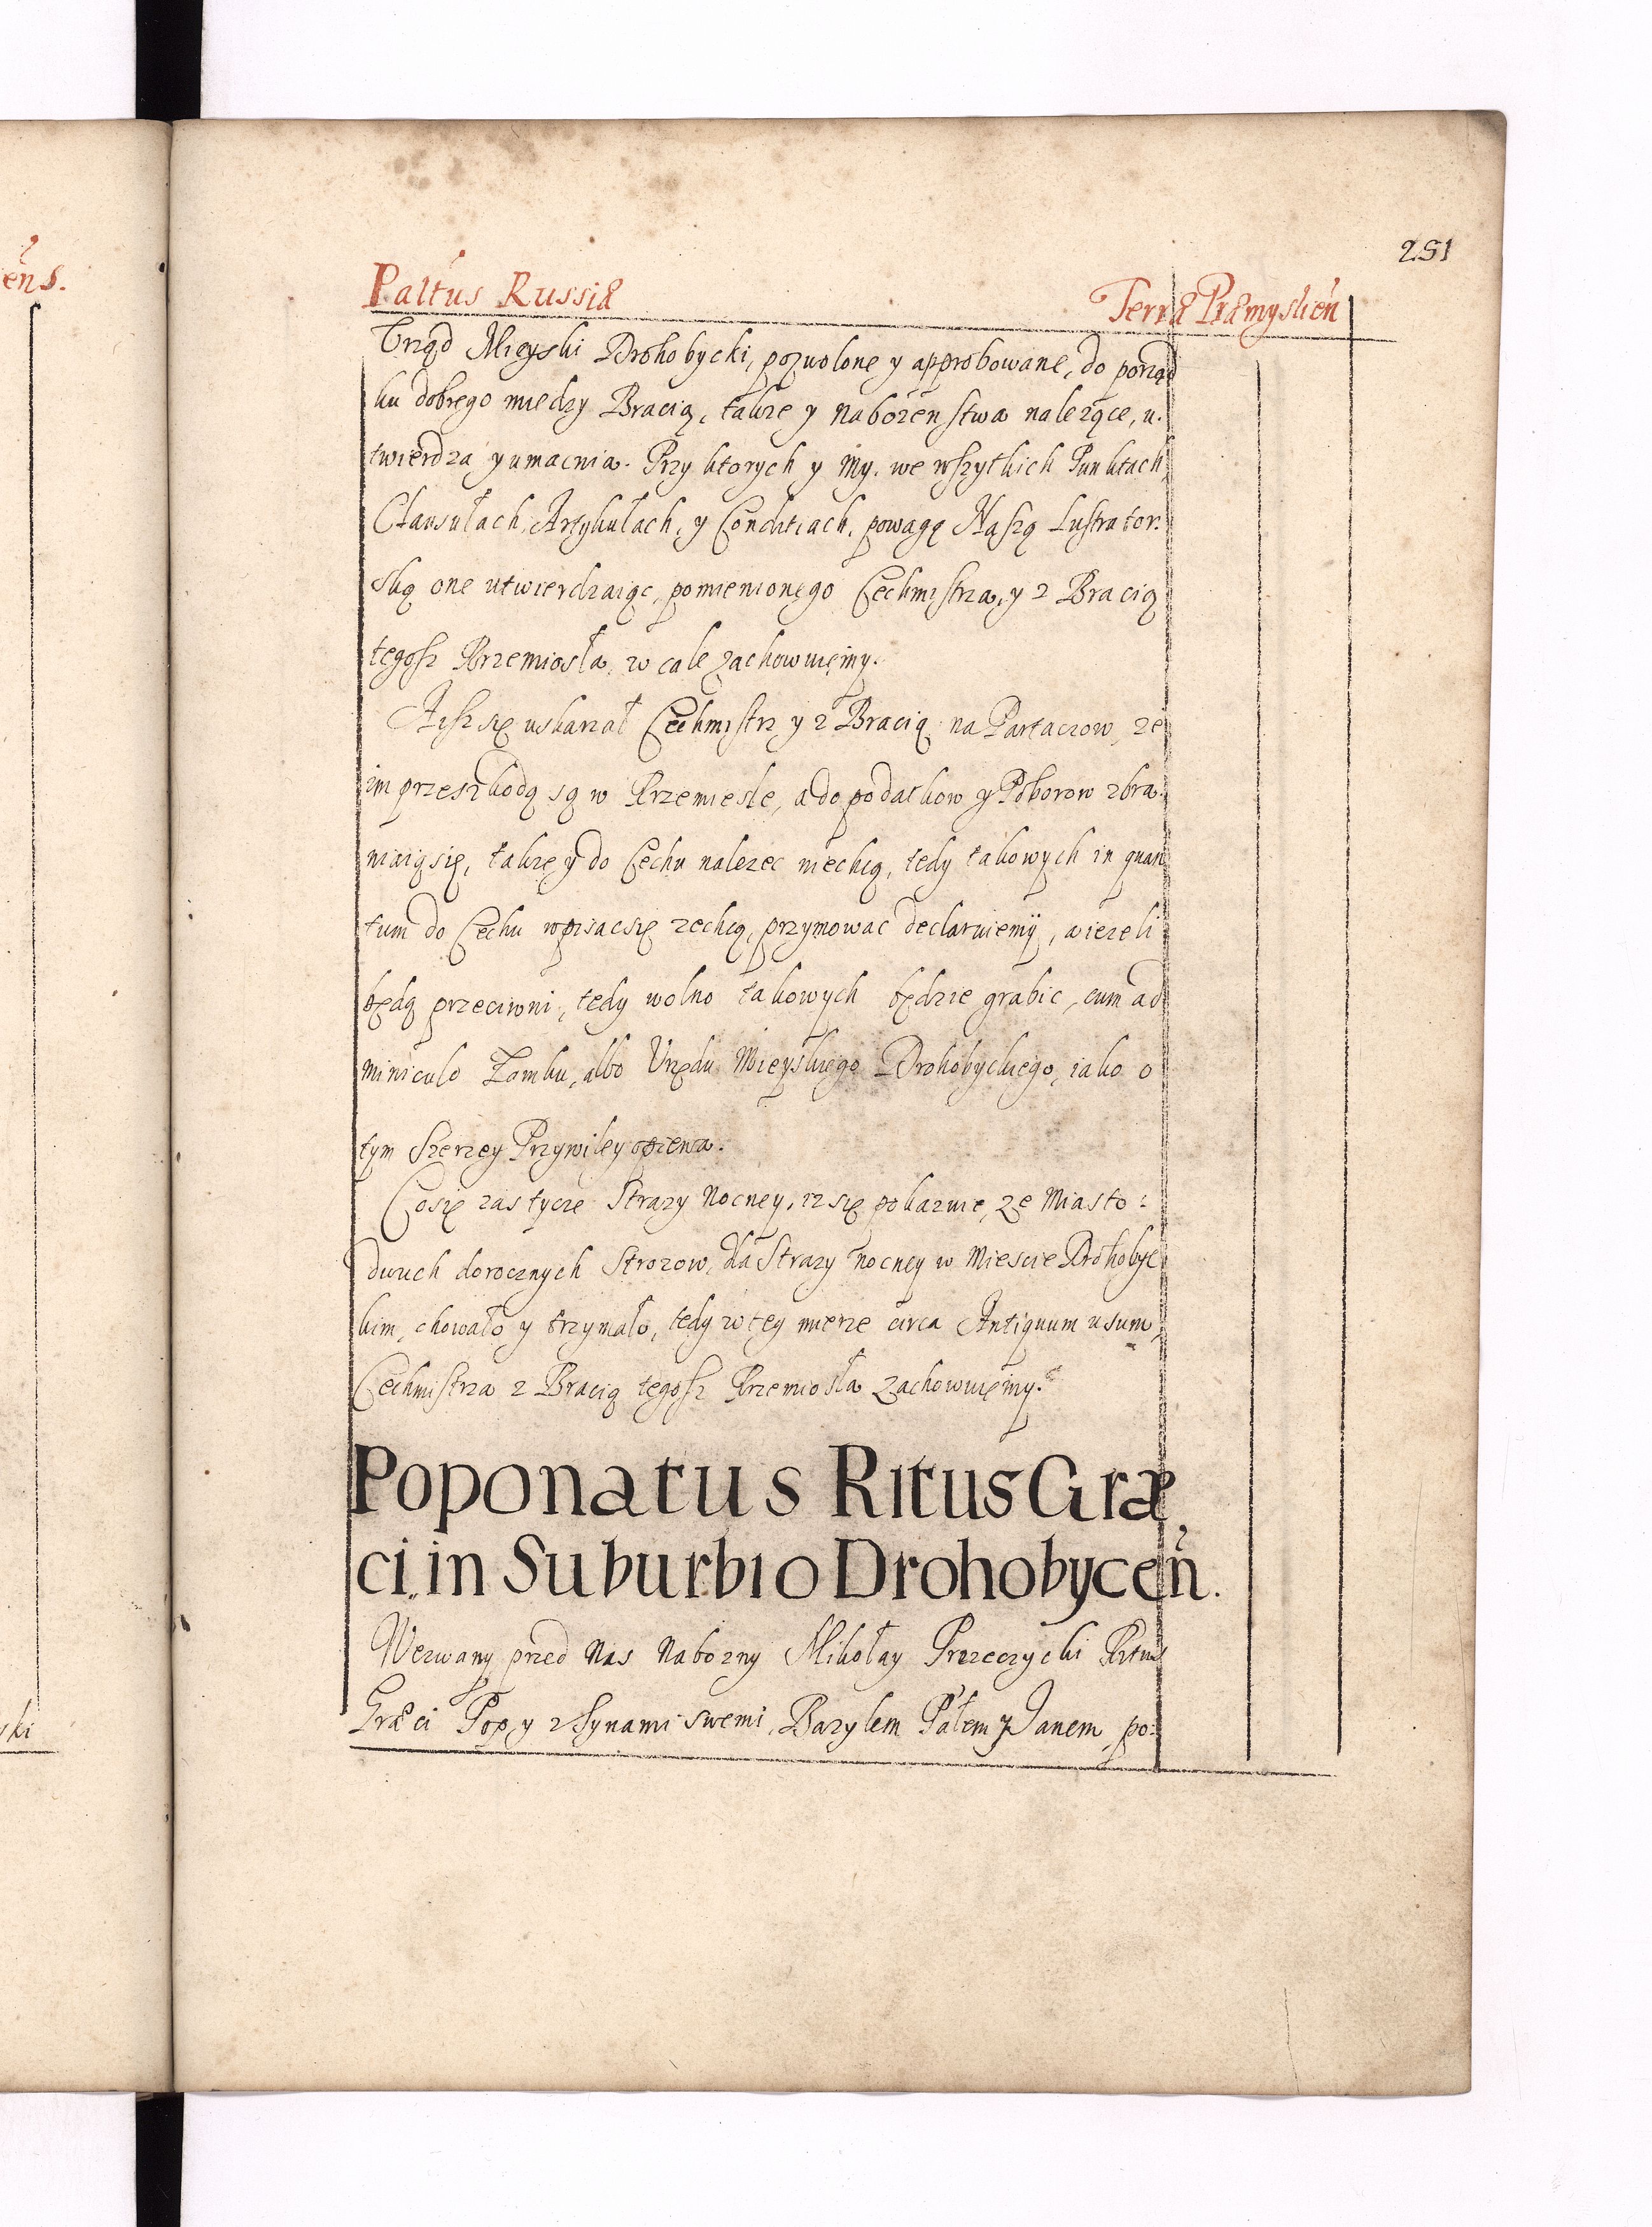 251
Paltus Russiæ Terræ Præmyslien
Urząd Mieyski Drohobycki, pozwolone y approbowane, do porząd
ku dobrego miedzy Bracią, takze y nabozenstwa nalezące, u.
twierdza y umacnia. Przy ktorych y my, we wszytkich Punktach,
Clausułach, Artykułach, y Conditiach, powagą Naszą Lustrator.
ską one utwierdzaiąc, pomienionego Cechmistrza, y z Bracią
tegosz Rzemiosła, w cale zachowuiemy.
Aisz się uskarzał Cechmistrz y z Bracią na Partaczow, ze
im przeszkodą są w Rzemiesle, a do podatkow y Poborow zbra.
niaią się, takze y do Cechu nalezec niechcą, tedy takowych in quan
tum do Cechu wpisac się zechcą, przymowac declaruiemy, a iezeli
będą przeciwni, tedy wolno takowych będzie grabic, cum ad
miniculo Zamku, albo Urzędu Mieyskiego Drohobyckiego, iako o
tym szerzey Przywiley opiewa.
Co się zas tycze Strazy Nocney, iz się pokazuie, ze Miasto:
dwuch dorocznych Strozow, dla Strazy nocney w Miescie Drohobyc
kim, chowało y trzymało, tedy w tey mierze circa Antiquum usum,
Cechmistrza z Bracią tegosz Rzemiosła zachowuiemy.
Poponatus Ritus Græ
ci in Suburbio Drohobycen.
Wezwany przed Nas Nabozny Mikołay Przeczycki Ritus
Græci Pop, y z Synami swemi, Bazylem Pałem y Janem, po:
ens.
ski